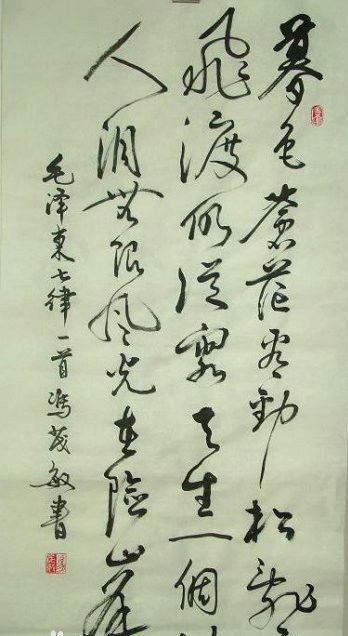 暮色蒼茫看勁松亂
飛渡仍從容天生一個
人洞無限風光在險峯
毛澤東七律一首馮茂敏書